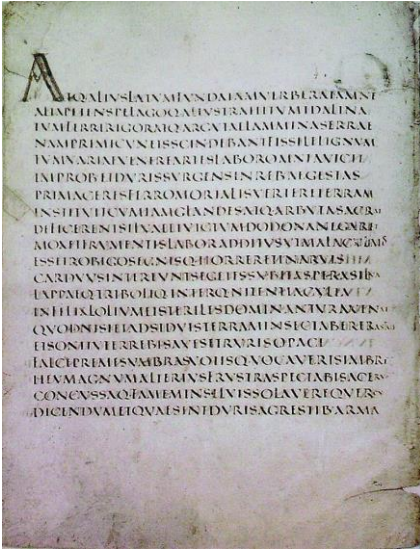 ATQALIVSLATVMFVNDAIAMVERBERATAMNE
ALTAPETENSPELAGOQALIVSTRAHITVMIDALINA
TVMFERRIRIGORATQARGVTAELAMMINASERRAE
NAMPRIMICVNEISSCINDEBANTFISSILELIGNVM
TVMVARIAEVENEREARTESLABOROMNIAVICIT
IMPROBETDVRISSVRGENSINREBVSEGESTAS
PRIMACERESFERROMORTALISVERTERETERRAM
INSTITVITCVMIAMGLANDESATQARBVTASACRAE
DEFICERENTSILVAEETVICTVMDODONANEGARET
MOXETFRVMENTISLABORADDITVSVTMALACVLMOS
ESSETROBIGOSEGNISQHORRERETINARVIS
CARDVVSINTEREVNTSEGETESSVBITASPERASILVA
LAPPAEQTRIBOLIQINTERQNITENTIACVLTA
INFELIXLOLIVMETSTERILESDOMINANTVRAVEN
QVODNISIETADSIDVISTERRAMINSECTABERERASTRI
ETSONITVTERREBISAVESETRVRISOPACI
FALCEPREMESVMBRASVOTISQVOCAVERISIMBRE
HEVMAGNVMALTERIVSFRVSTRASPECTABISACER
CONCVSSAQFAMEMINSILVISSOLAVEREQVERC
DICENDVMETQVAESINTDVRISAGRESTIBVARMA